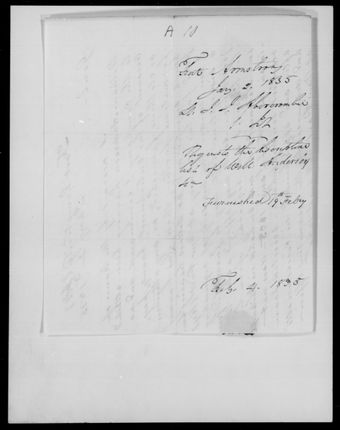 A 10
Fort Armstrong
Jany 2. 1835
Lt. J. J. Abercrombie
1. Lt
Requests the descriptive
list of Will Anderson
Furnished 19th Feby
Feb. 4. 1835